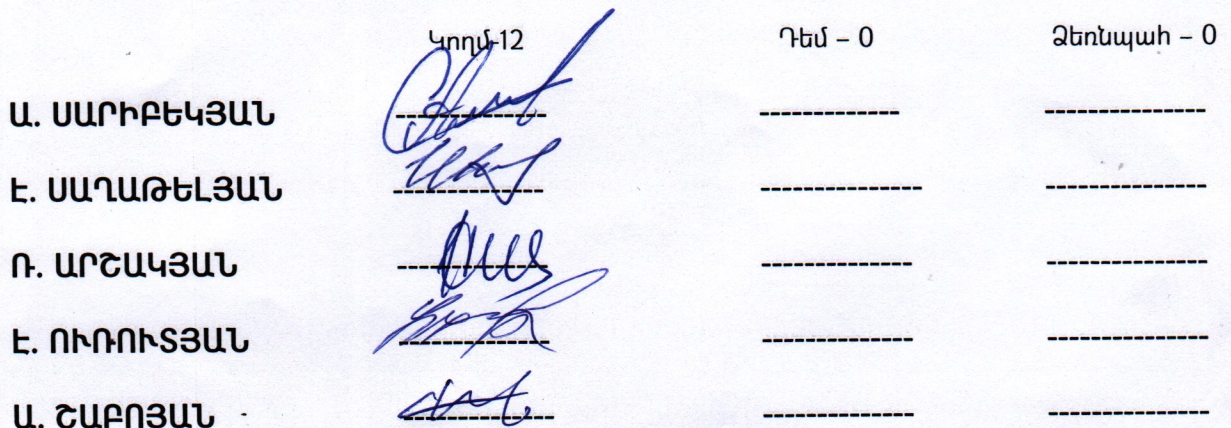 Կողմ-12 Դեմ – 0 Ձեռնպահ – 0
Ա. ՍԱՐԻԲԵԿՅԱՆ ------------------ -------------- ----------------
Է. ՍԱՂԱԹԵԼՅԱՆ --------------- ---------------- ----------------
Ռ. ԱՐՇԱԿՅԱՆ --------------- --------------- ----------------
Է. ՈՒՌՈՒՏՅԱՆ --------------- --------------- ----------------
Ա. ՇԱԲՈՅԱՆ --------------- --------------- ----------------